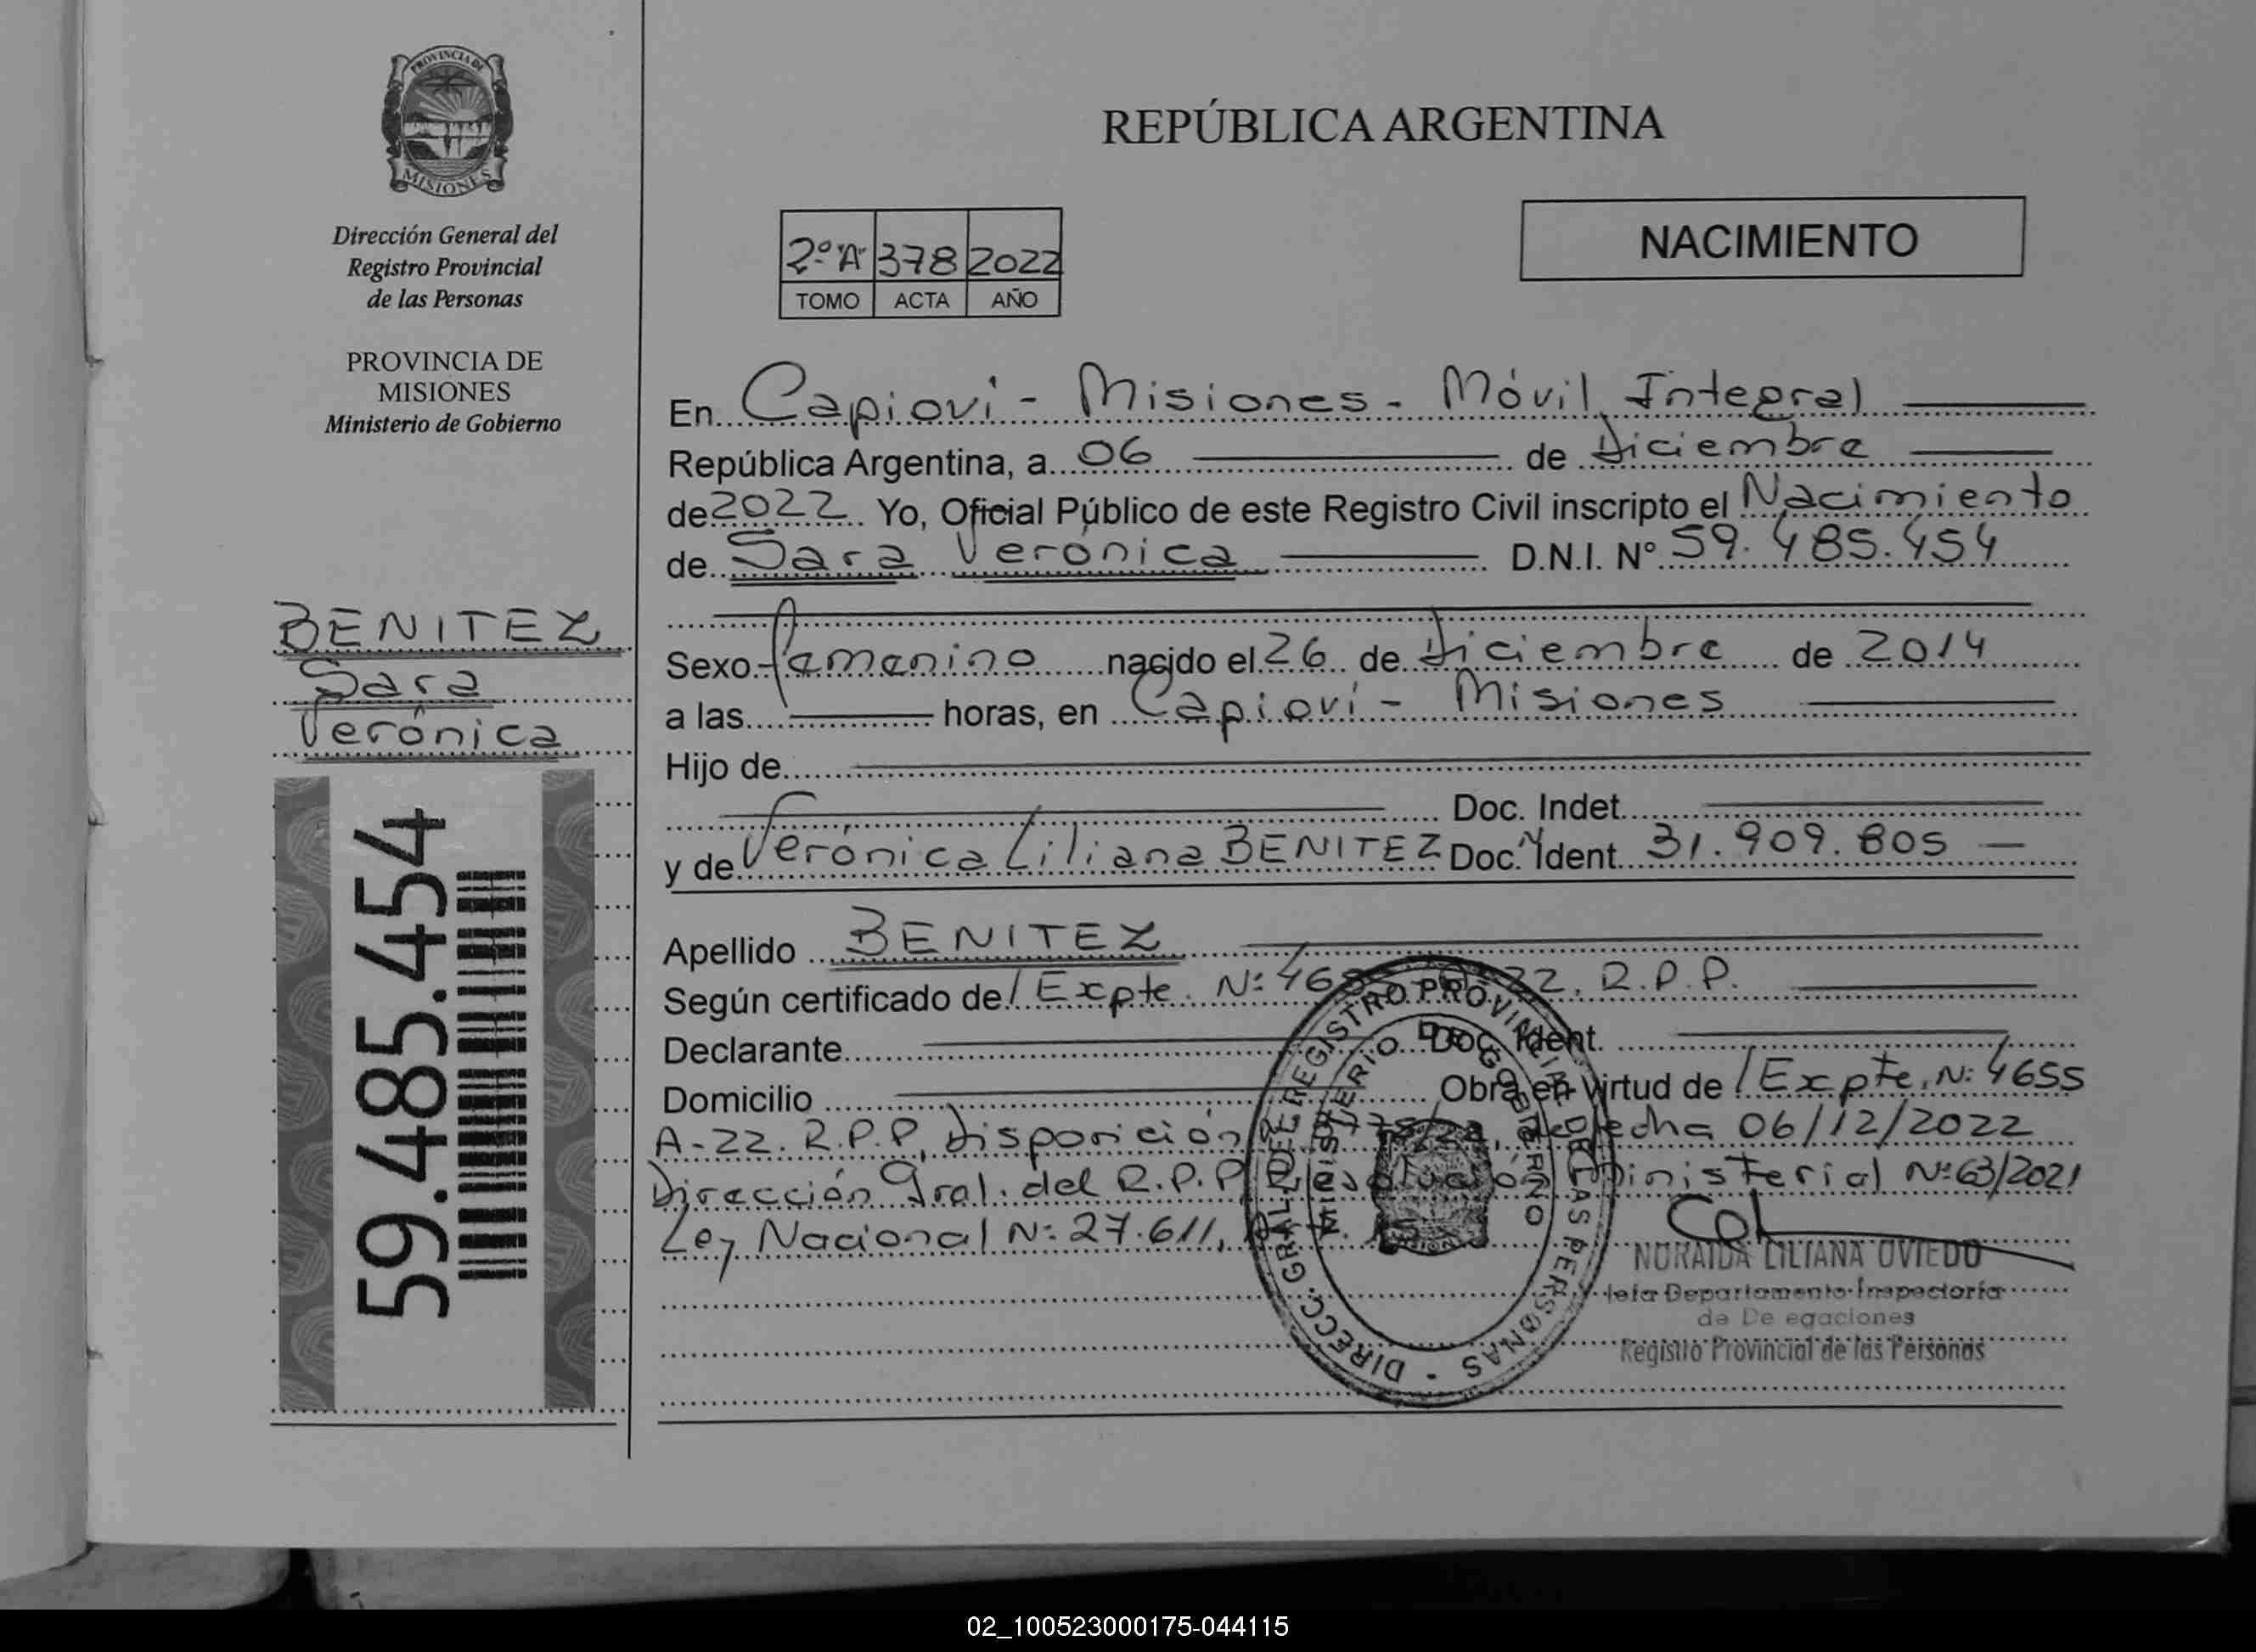 PROVINCIA DE
MISIONES
Dirección General del
Registro Provincial
de las Personas
PROVINCIA DE
MISIONES
Ministerio de Gobierno
BENITEZ
Sara
Verónica
59.485.454
REPÚBLICA ARGENTINA
NACIMIENTO
2º "A" 378 2022
TOMO ACTA AÑO
En Capioví - Misiones - Móvil Integral
República Argentina, a 06 de Diciembre
de 2022 Yo, Oficial Público de este Registro Civil inscripto el Nacimiento
de Sara Verónica D.N.I. Nº 59.485.454
Sexo femenino nacido el 26 de Diciembre de 2014
a las horas, en Capioví - Misiones
Hijo de
Doc. Indet.
y de Verónica Liliana BENITEZ Doc. Ident. 31.909.805
Apellido BENITEZ
Según certificado de / Expte. Nº 22. R.P.P.
Declarante Doc. Ident.
Domicilio Obra en virtud de / Expte. Nº 4655
A-22. R.P.P, Disposición de fecha 06/12/2022
Dirección Gral. del R.P.P, Resolución Ministerial Nº 63/2021
Ley Nacional Nº 27.611,
DIRECC. GRAL. DEL REGISTRO PROVINCIAL DE LAS PERSONAS -
MINISTERIO DE GOBIERNO
NORAIDA LILIANA OVIEDO
Jefa Departamento Inspectoría
de De egaciones
Registro Provincial de las Personas
02_100523000175-044115